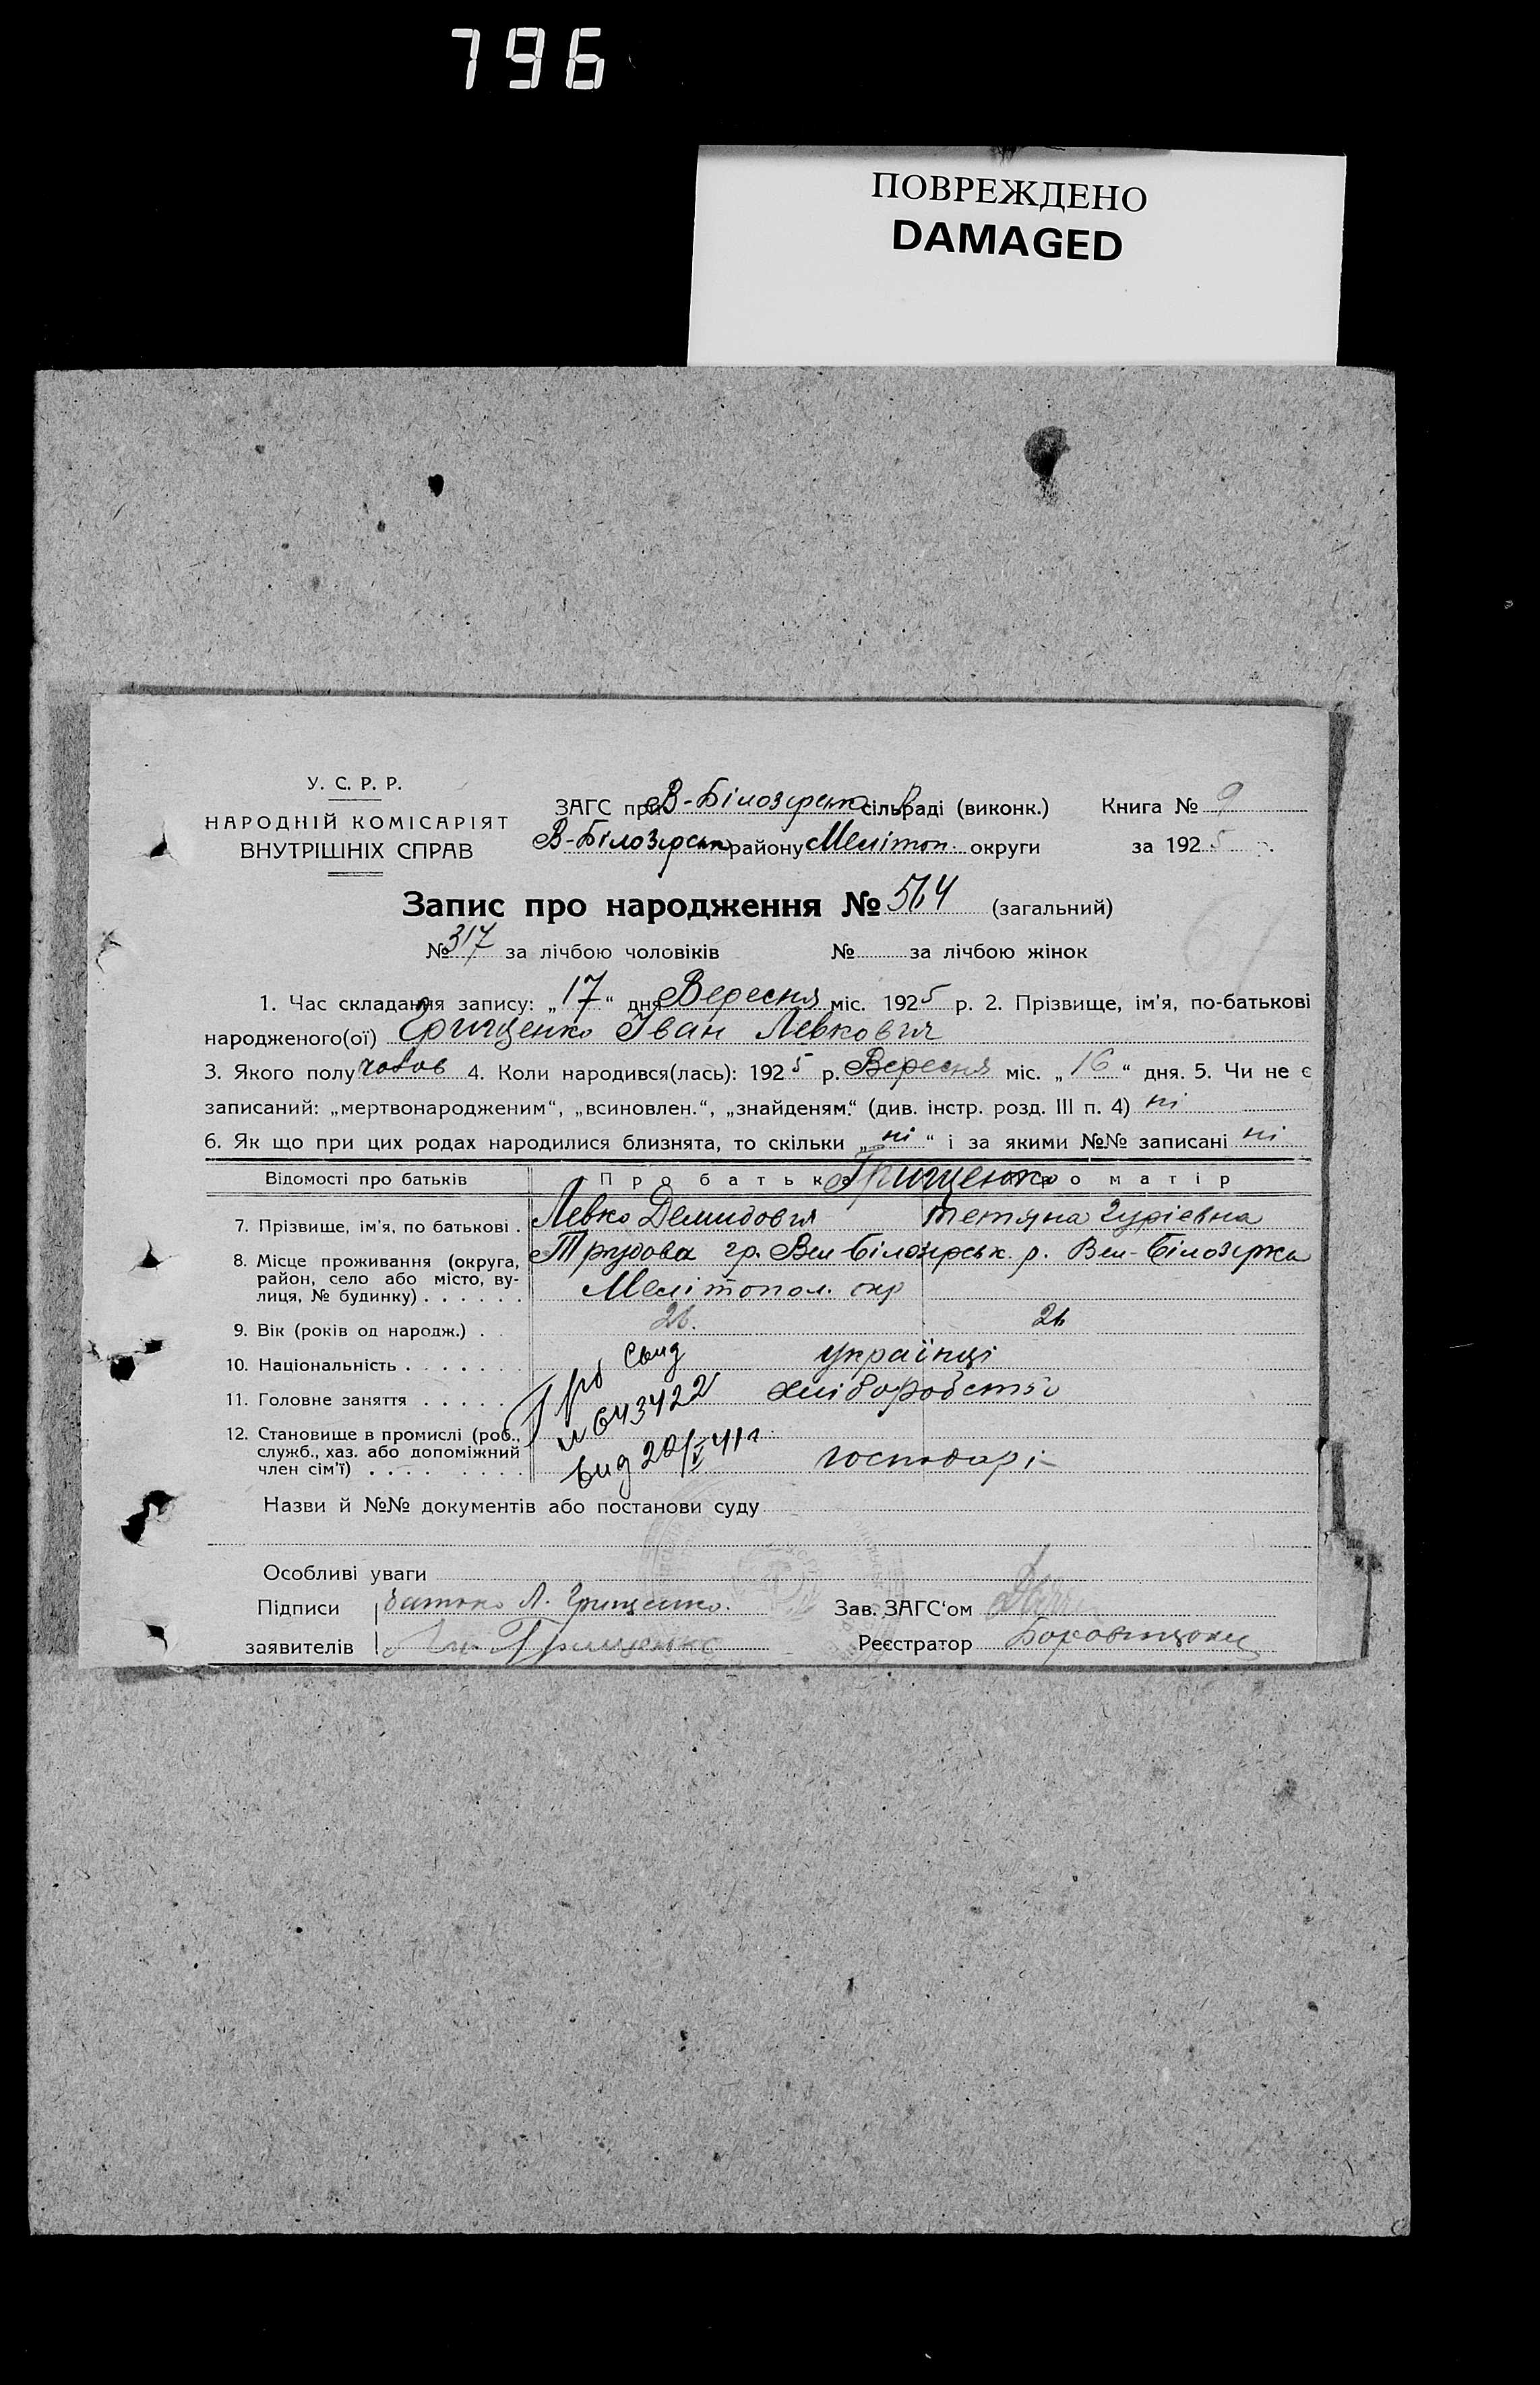 796
ПОВРЕЖДЕНО
DAMAGED
У. С. Р. Р.
НАРОДНІЙ КОМІСАРІЯТ
ВНУТРІШНІХ СПРАВ
ЗАГС при В-Білозірськ сільраді (виконк.) Книга № 9
В-Білозірськ району Мелітоп. округи за 1925 р.
Запис про народження № 564 (загальний)
№ 317 за лічбою чоловіків № за лічбою жінок
1. Час складання запису: „17“ дня Вересня міс. 1925 р. 2. Прізвище, ім'я, по-батькові
народженого(ої) Грищенко Іван Левкович
3. Якого полу чолов 4. Коли народився(лась): 1925 р. Вересня міс. „16“ дня. 5. Чи не є
записаний: „мертвонародженим“, „всиновлен.“, „знайденям.“ (див. інстр. розд. III п. 4) ні
6. Як що при цих родах народилися близнята, то скільки „ні“ і за якими №№ записані ні
Відомості про батьків Про батька Грищенко Про матір
7. Прізвище, ім'я, по батькові . Левко Демидович Тетяна Гуріевна
8. Місце проживання (округа, район, село або місто, вулиця, № будинку) . . . . . . Трудова гр. Вел Білозірськ. р. Вел-Білозірка
Мелітопол. окр
9. Вік (років од народж.) . . 26. 26
10. Національність . . . . . . . українці
11. Головне заняття . . . . . хліборобство
12. Становище в промислі (роб., служб., хаз. або допоміжний член сім'ї) . . . . . . . . господарі
свид
№ 643422
вид 20/V 41 г.
Назви й №№ документів або постанови суду
Особливі уваги
Підписи батько Л. Грищенко. Зав. ЗАГС'ом
заявителів Грищенко Реєстратор